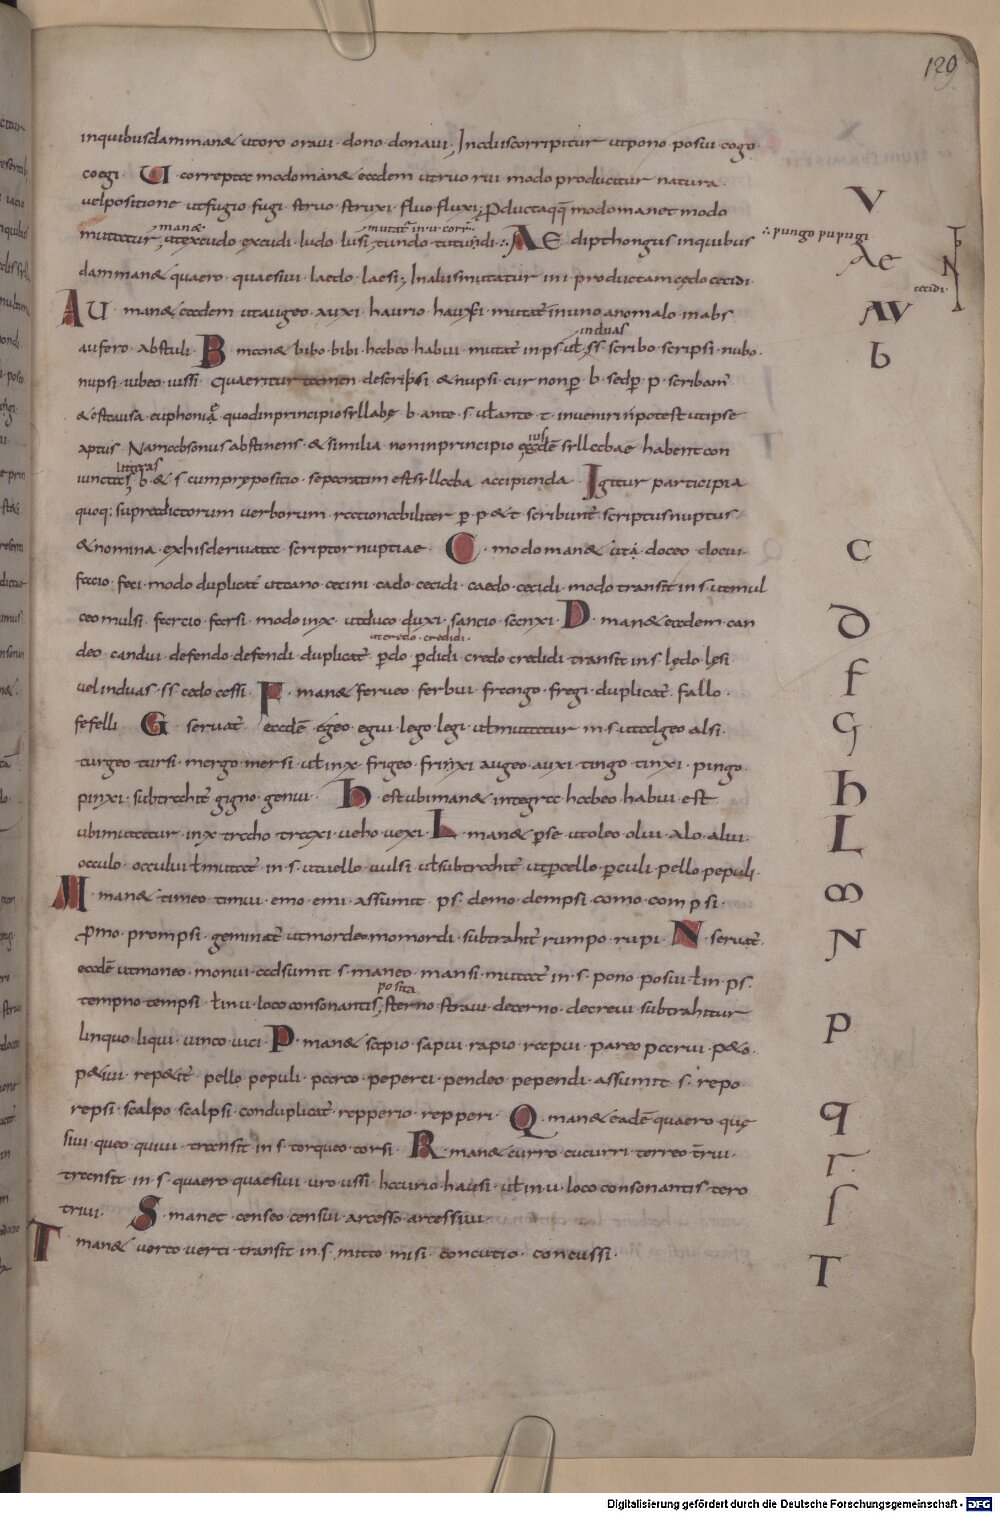 129
inquibusdam man& utoro oraui · dono donaui · In ŏ uŏ corripitur ut pono posui · cogo
coegi · U correpta modo man& eadem ut ruo rui modo producitur natura ·
uel positione ut fugio fugi · struo struxi · fluo fluxi · Productaq; modo manet modo
man& mutat in u corr
mutatur ut excudo excudi · ludo lusi · tundo tutudi · AE dipthongus in quibus
∴ pungo pupugi
dam man& quaero · quaesiui · laedo · laesi · In aliis mutatur in i · productam cędo cecidi ·
cecidi ·
AU · man& eadem ut augeo · auxi · haurio · hauxsi · mutat in uno anomalo in abs
in duas
aufero · abstuli · B · manet bibo · bibi · habeo habui · mutat in ps ul ss · scribo · scripsi · nubo ·
nupsi · iubeo · iussi · quaeritur tamen · descripsi · & nupsi · cur non p · b · sed p · p · scribam
& est causa · euphonię · quod in principio sillabę · b · ante · s · ul ante · t · inueniri n potest ut ipse
aptus · Nam absonus abstinens · & similia non in principio eiusdē sillabae habent con
litteras
iunctas b · & s · cum praepositio · separatim est sillaba accipienda · Igitur participia
quoq; supradictorum uerborum · rationabiliter p · p & t · scribunt scriptus nuptus
& nomina · ex his deriuata · scriptor nuptiae · C · modo man& ut · doceo · docui ·
facio · feci · modo duplicat ut cano · cecini · cado · cecidi · caedo · cecidi · modo transit in s · ut mul
ceo mulsi · farcio · farsi · modo in x · ut duco duxi · sancio · sanxi · D · man& eadem can
ut credo · credidi ·
deo · candui · defendo defendi · duplicat pdo pdidi · credo credidi transit in s · lędo · lęsi
uel in duas · ss · cedo cessi · F · man& ferueo ferbui · frango · fregi · duplicat fallo ·
fefelli · G · seruat eandē egeo · egui · lego · legi · ul mutatur in · s · ut algeo alsi ·
turgeo tursi · mergo · mersi · ul in x · frigeo · frinxi augeo · auxi · tingo tinxi · pingo
pinxi · subtrahit gigno · genui · h · est ubi man& integra · habeo · habui · est
ubi mutatur · in x · traho traxi · ueho · uexi · L man& p se ut oleo · olui · alo · alui ·
occulo · occului ł mutat in · s · ut uello · uulsi · ul subtrahit ut pcello · pculi · pello pepuli ·
M · man& timeo timui · emo · emi · assumit · ps · demo · dempsi · como · compsi ·
Promo · prompsi · geminat ut mordeo momordi · subtrahit rumpo · rupi · N · seruat
eandē ut moneo · monui · adsumit s · maneo · mansi · mutat in · s · pono · posui ł in · ps ·
posita
tempno tempsi · ł in u · loco consonantis · sterno · straui · decerno · decreui · subtrahitur
linquo · liqui · uinco · uici · P · man& sapio · sapui · rapio · rapui · pareo parui · p&o
p&iui · rep&it · pello pepuli · parco · peperci · pendeo · pependi · assumit s · repo
repsi · scalpo scalpsi · conduplicat repperio · repperi · Q · man& eadē quaero quę
siui · queo quiui · transit in s · torqueo · torsi · R · man& curro · cucurri · terreo trui ·
transit in · s · quaero quaesiui · uro ussi · haurio hausi · ul in u · loco consonantis tero
triui · S · manet · censeo censui · arcesso arcessiui
T man& uerto uerti transit in s mitto misi · concutio · concussi ·
V
AE
N
AV
b
C
D
F
G
h
L
M
N
P
q
r
ſ
T
Digitalisierung gefördert durch die Deutsche Forschungsgemeinschaft - DFG